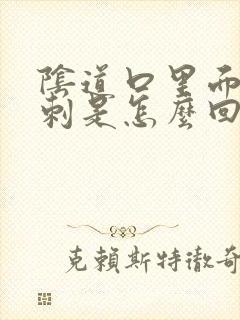 陰道口里而
刺是怎麼回
克賴斯特徹奇